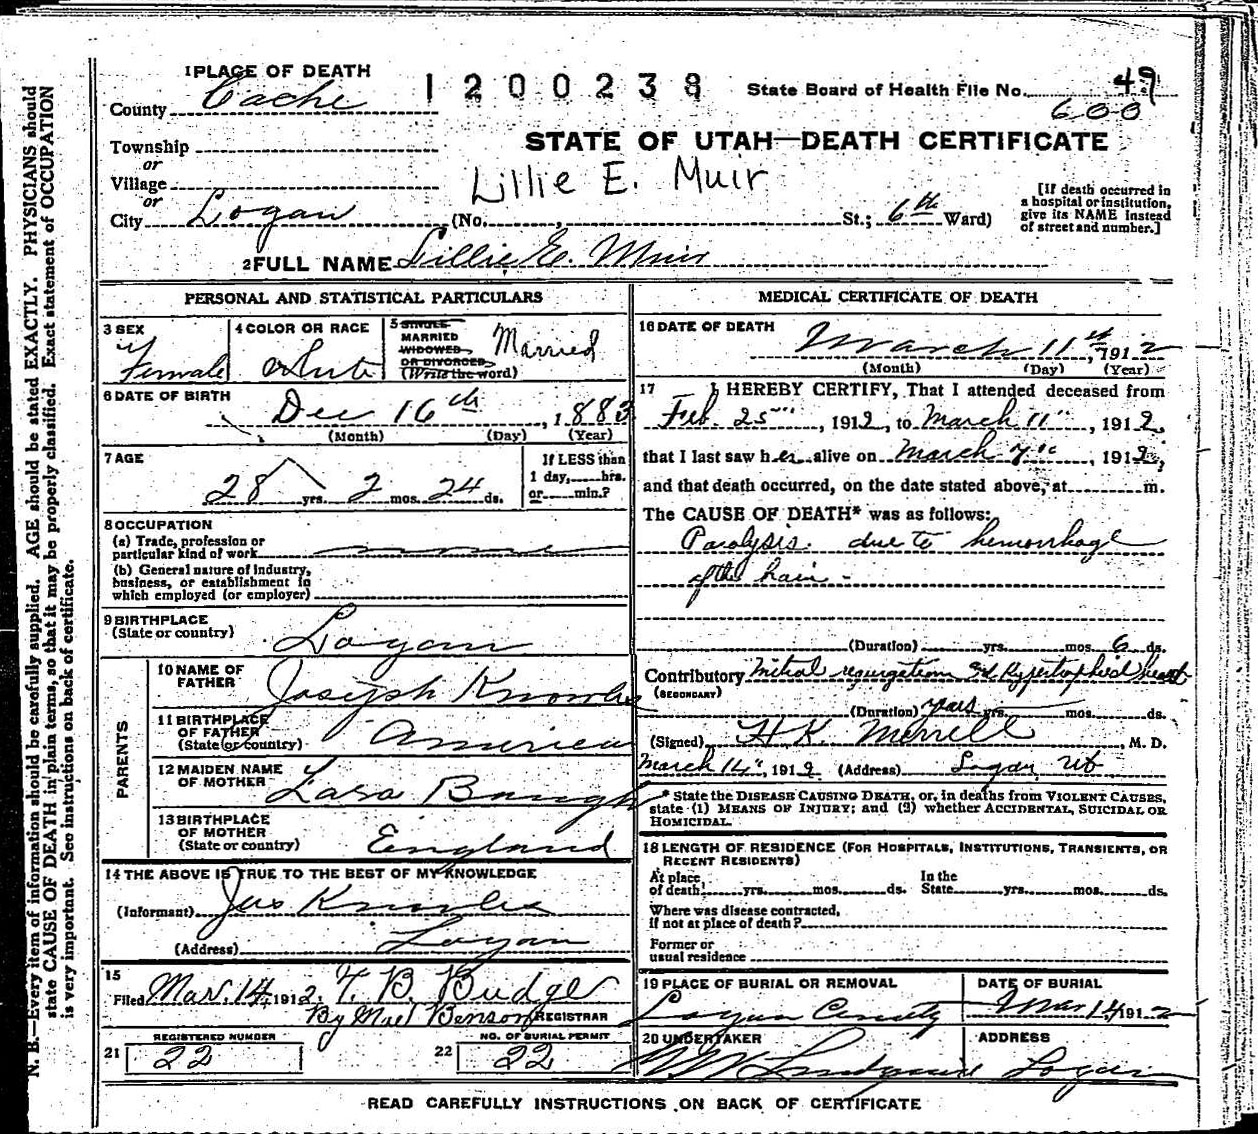 N. B.—Every item of information should be carefully supplied. AGE should be stated EXACTLY. PHYSICIANS should
state CAUSE OF DEATH in plain terms, so that it may be properly classified. Exact statement of OCCUPATION
is very important. See instructions on back of certificate.
1 PLACE OF DEATH
County Cache
1200238
State Board of Health File No. 49
600
STATE OF UTAH—DEATH CERTIFICATE
Township
or
Village
or
Lillie E. Muir
City Logan (No. , St.; 6th Ward)
[If death occurred in
a hospital or institution,
give its NAME instead
of street and number.]
2 FULL NAME Lillie E. Muir
PERSONAL AND STATISTICAL PARTICULARS
3 SEX
Female
4 COLOR OR RACE
White
5 SINGLE
MARRIED
WIDOWED
OR DIVORCED
(Write the word)
Married
6 DATE OF BIRTH
Dec 16th, 1883
(Month) (Day) (Year)
7 AGE
28 yrs. 2 mos. 24 ds.
If LESS than
1 day, hrs.
or min.?
8 OCCUPATION
(a) Trade, profession or
particular kind of work
(b) General nature of industry,
business, or establishment in
which employed (or employer)
9 BIRTHPLACE
(State or country) Logan
PARENTS
10 NAME OF
FATHER Joseph Knowles
11 BIRTHPLACE
OF FATHER
(State or country) America
12 MAIDEN NAME
OF MOTHER Baugh
13 BIRTHPLACE
OF MOTHER
(State or country) England
14 THE ABOVE IS TRUE TO THE BEST OF MY KNOWLEDGE
(Informant) Jos Knowles
(Address) Logan
15
Filed Mar. 14, 1912. T. B. Budge
By Benson REGISTRAR
21 REGISTERED NUMBER
22
22 NO. OF BURIAL PERMIT
22
MEDICAL CERTIFICATE OF DEATH
16 DATE OF DEATH
March 11th, 1912
(Month) (Day) (Year)
17 I HEREBY CERTIFY, That I attended deceased from
Feb. 25", 1912, to March 11", 1912,
that I last saw her alive on March 7", 1912,
and that death occurred, on the date stated above, at m.
The CAUSE OF DEATH* was as follows:
Paralysis. due to hemorrhage
of the brain -
(Duration) yrs. mos. 6 ds.
Contributory Mitral regurgitation and Hypertrophied heart
(SECONDARY)
(Duration) years yrs. mos. ds.
(Signed) H K. Merrell, M. D.
March 14", 1912 (Address) Logan Ut
* State the DISEASE CAUSING DEATH, or, in deaths from VIOLENT CAUSES,
state (1) MEANS OF INJURY; and (2) whether ACCIDENTAL, SUICIDAL OR
HOMICIDAL.
18 LENGTH OF RESIDENCE (FOR HOSPITALS, INSTITUTIONS, TRANSIENTS, OR
RECENT RESIDENTS)
At place
of death yrs. mos. ds.
In the
State yrs. mos. ds.
Where was disease contracted,
if not at place of death?
Former or
usual residence
19 PLACE OF BURIAL OR REMOVAL
Logan
DATE OF BURIAL
Mar. 14 1912
20 UNDERTAKER
ADDRESS
Logan
READ CAREFULLY INSTRUCTIONS ON BACK OF CERTIFICATE